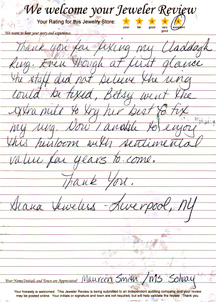 We welcome your Jeweler Review
Your Rating for this Jewelry Store:
good
very good
We want to hear your story and experience.
Thank you for fixing my Claddagh
Ring. Even though at first glance
the staff did not believe the ring
could be fixed, Betsy went the
extra mile to try her best to fix
my ring. Now I am able to enjoy
this heirloom with sentimental
value for years to come.
Thank You.
Diana Jewelers - Liverpool, NY
Your Name/Initials and Town are Appreciated: Maureen Smith / MS Solvay
Your honesty is welcomed. This Jeweler Review is being submitted to an independent auditing company and your review
may be posted online. Your initials or signature and town are not required, but will help validate the review. Thank you.